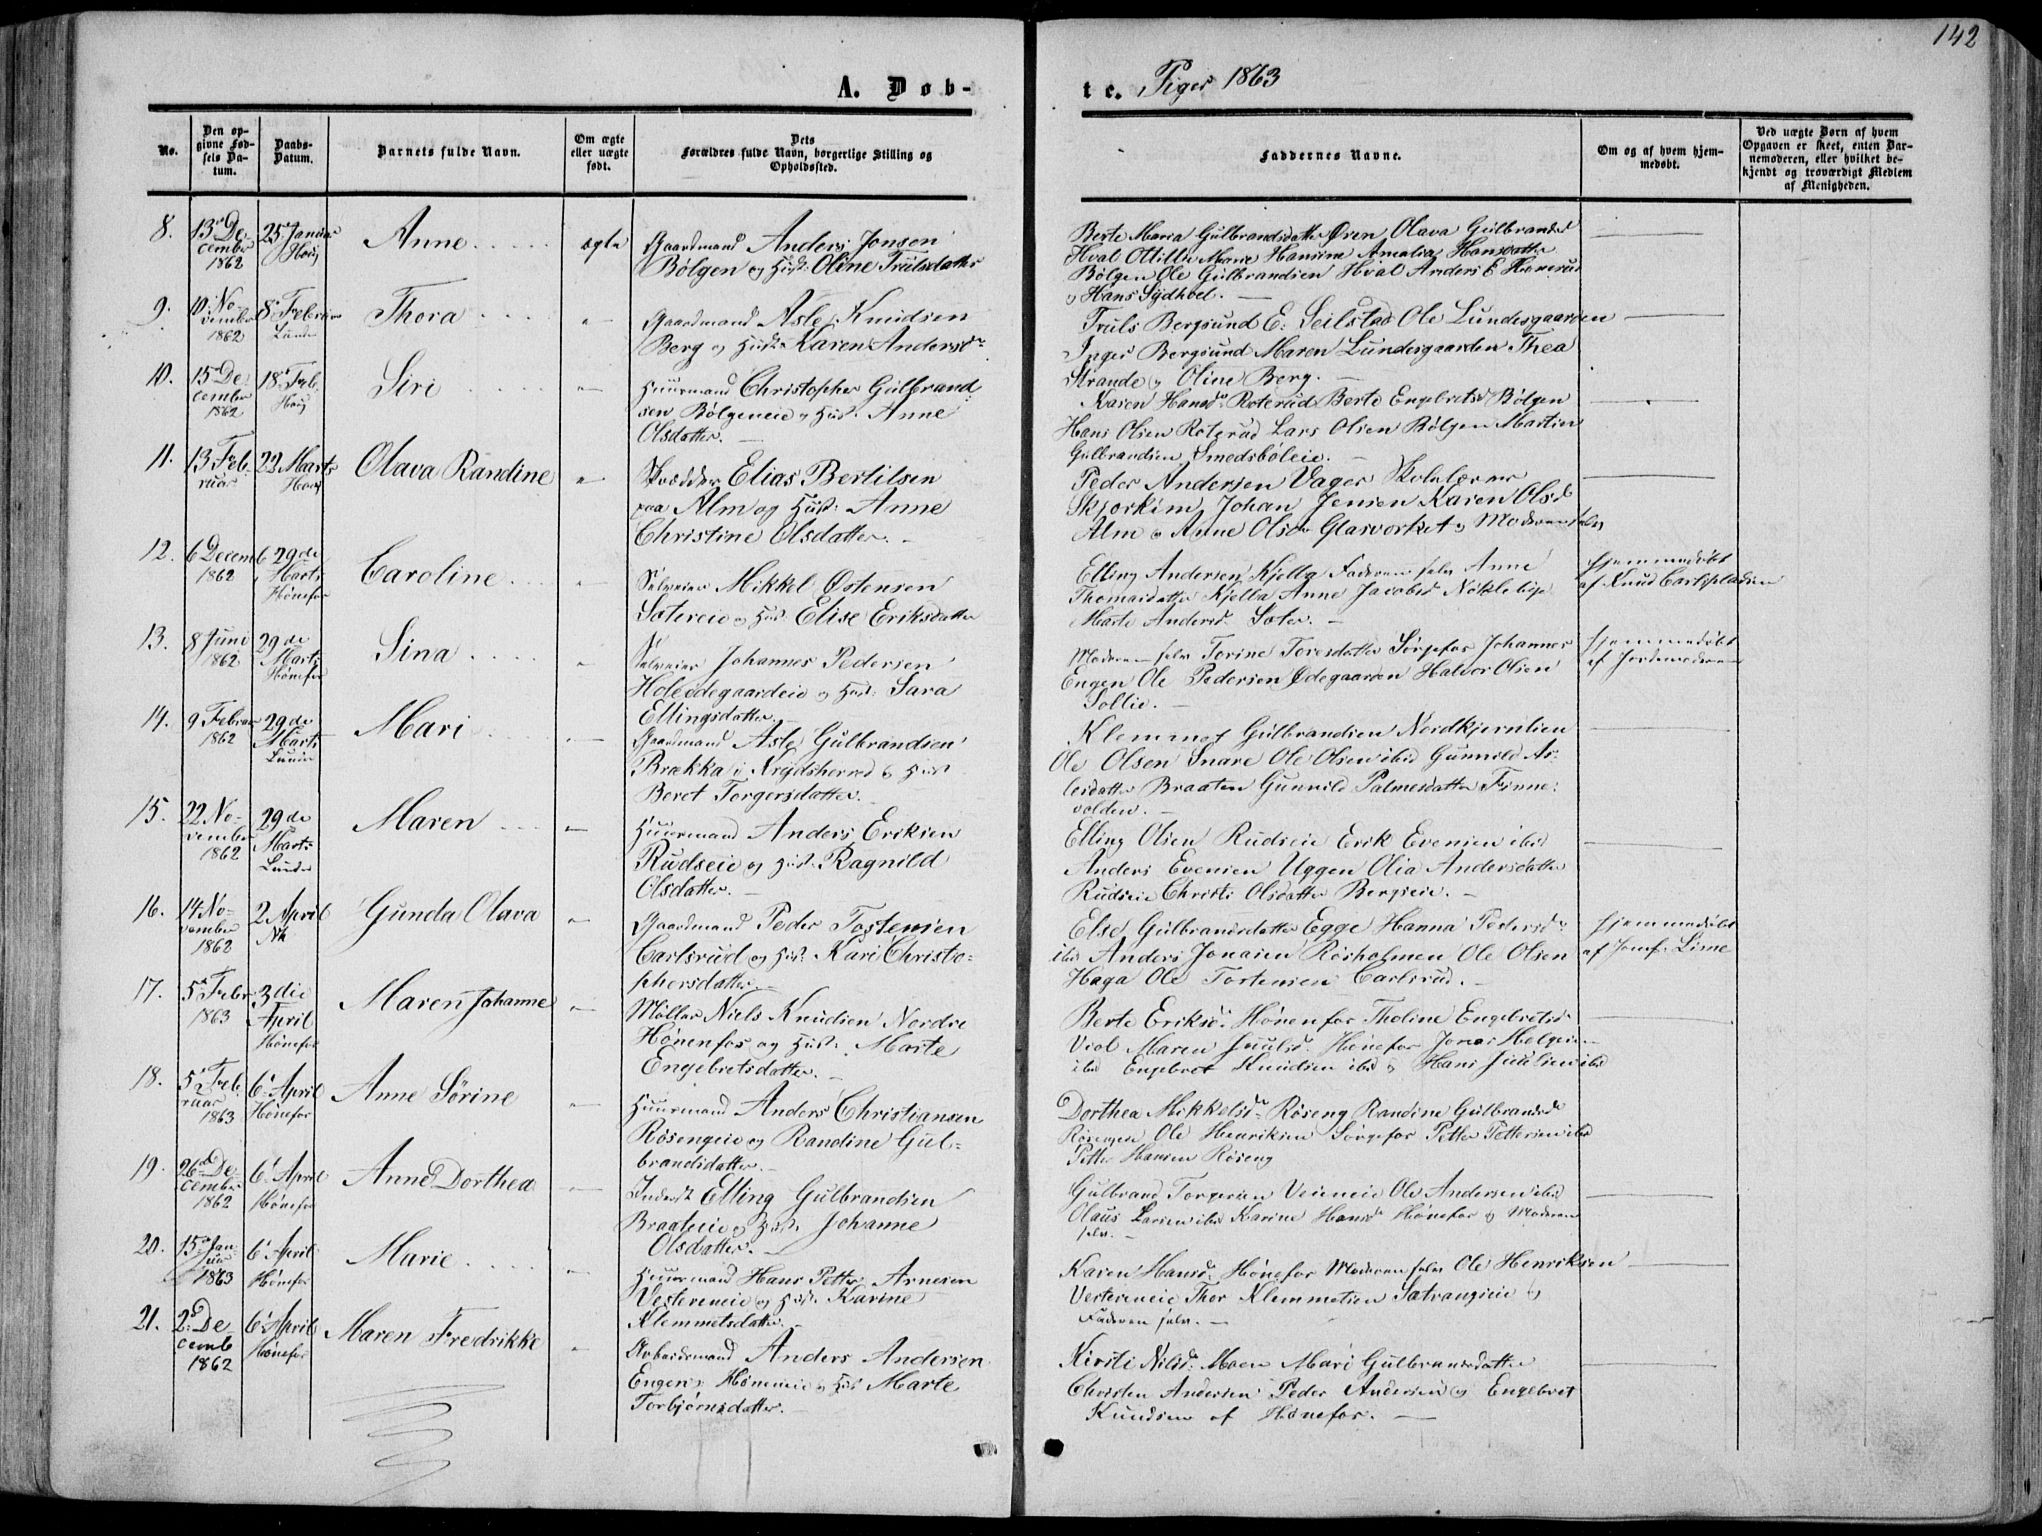 142
A. Døb-
te. Piger 1863
No.
Den op-
givne Fød-
sels Da-
tum.
Daabs-
Datum.
Barnets fulde Navn.
Om ægte
eller uægte
født.
Dets
Forældres fulde Navn, borgerlige Stilling og
Opholdssted.
Faddernes Navne.
Om og af hvem hjem-
medøbt.
Ved uægte Børn af hvem
Opgaven er skeet, enten Bar-
nemoderen, eller hvilket be-
kjendt og troværdigt Medlem
af Menigheden.
8.
13 De
cember
1862
25 Januar
Houg
Anne
ægte
Gaardmand Anders Jonsen
Bølgen og Hust: Oline Trulsdatter
Berte Maria Gulbrandsdatter Øren Olava Gulbrandsd
Hval Ottilie Marie Hansine Amalia Hansdatter
Bølgen Ole Gulbrandsen Hval Anders E
Hans Sydhvel. —
9.
10 No-
vember
1862
8 Februar
Lunder
Thora
"
Gaardmand Asle Knudsen
Berg og Hust: Karen Andersd
Truls Bergsund E: Seilstad Ole Lundesgaarden
Inger Bergsund Maren Lundesgaarden Thea
Strande og Oline Berg. —
10.
15 De
cember
1862
18 Feb.
Houg
Siri
"
Huusmand Christopher Gulbrand
sen Bølgeneie og Hust. Anne
Olsdatter. —
Karen Hansd. Roterud Berte Engebretsd Bølgen
Hans Olsen Roterud Lars Olsen Bølgen Martin
Gulbrandsen Smedsbøleie. —
11.
13 Feb.
ruar
22 Marts
Houg
Olava Randine
"
Skrædder Elias Bertilsen
paa Alm og Hust: Anne
Christine Olsdatter. —
Peder Andersen Vager Skolelærer
Johan Jensen Karen Olsd
Alm og Anne Olsd Glasværket og Moderen selv
12.
6 Decem
1862
29de
Marts
Hønefos
Caroline
"
Selveier Mikkel Østensen
Sotereie og Hust: Elise Eriksdatter
Elling Andersen Kjella Faderen selv Anne
Thomasdatter Kjella Anne Jacobsd Nøkleby
Marte Andersd. Soter. —
Hjemmedøbt
af Knud Carlspladsen
13.
8 Juni
1862
29de
Marts
Hønefos
Sina
"
Selveier Johannes Pedersen
Hole Ødegaardeie og Hust: Sara
Ellingsdatter. —
Moderen selv Torine Toresdatter Sørgefos Johannes
Engen Ole Pedersen Ødegaarden Halvor Olsen
Sollie. —
Hjemmedøbt
af Jordemoderen
14.
9 Februar
1862
29de
Marts
Lunder
Mari
"
Gaardmand Asle Gulbrandsen
Brækka i Krydsherred og Hust
Beret Torgersdatter. —
Klemmet Gulbrandsen Nordkjernlien
Ole Olsen Snare Ole Olsen ibid Gunnild As-
lesdatter Braaten Gunnild Palmesdatter Finne-
volden. —
15.
22 No-
vember
1862
29de
Marts
Lunder
Maren
"
Huusmand Anders Eriksen
Rudseie og Hust. Ragnild
Olsdatter. —
Elling Olsen Rudseie Erik Evensen ibid
Anders Evensen Uggen Olia Andersdatter
Rudseie Christi Olsdatter Bergseie. —
16.
14 No-
vember
1862
2 April
Nh
Gunda Olava
"
Gaardmand Peder Tostensen
Carlsrud og Hust: Kari Christo-
phersdatter. —
Else Gulbrandsdatter Egge Hanna Pedersd
ibid Anders Jonasen Rosholmen Ole Olsen
Haga Ole Tostensen Carlsrud. —
Hjemmedøbt
af Jomf. Lime
17.
5 Febr.
1863
3die
April
Hønefos
Maren Johanne
"
Møller Niels Knudsen Nordre
Hønenfos og Hust: Marte
Engebretsdatter. —
Berte Eriksd. Hønenfos Theline Engebretsd
Viol Maren Juulsd. Hønefos Jonas Helgesen
ibid Engebret Knudsen ibid og Hans Juulsen ibid
18.
5 Feb.
ruar
1863
6 April
Hønefos
Anne Sørine
"
Huusmand Anders Christiansen
Røsengeie og Randine Gul-
brandsdatter. —
Dorthea Mikkelsd. Røseng Randine Gulbrandsd
Røsengen Ole Henriksen Sørgefos Petter Pettersen ibid
Petter Hansen Røseng
19.
26 De
cember
1862
6 April
Hønefos
Anne Dorthea
"
Inderst Elling Gulbrandsen
Braateie og Hust: Johanne
Olsdatter. —
Gulbrand Torgersen Veieneie Ole Andersen ibid
Olaus Larsen ibid Karine Hansd. Hønefos og Moderen
selv. —
20.
15 Jan-
uar
1863
6 April
Hønefos
Marie
"
Huusmand Hans Petter Arnesen
Vestereneie og Hust: Karine
Klemmetsdatter. —
Karen Hansd. Hønefos Moderen selv Ole Henriksen
Vestereneie Thor Klemmetsen Satrangseie og
Faderen selv. —
21.
2 De
cemb
1862
6 April
Hønefos
Maren Fredrikke
"
Arbeidsmand Anders Andersen
Engen Høneneie og Hust Marte
Torbjørnsdatter. —
Kirsti Nilsd. Moen Mari Gulbrandsdatter
Christen Andersen Peder Andersen og Engebret
Knudsen af Hønefos. —